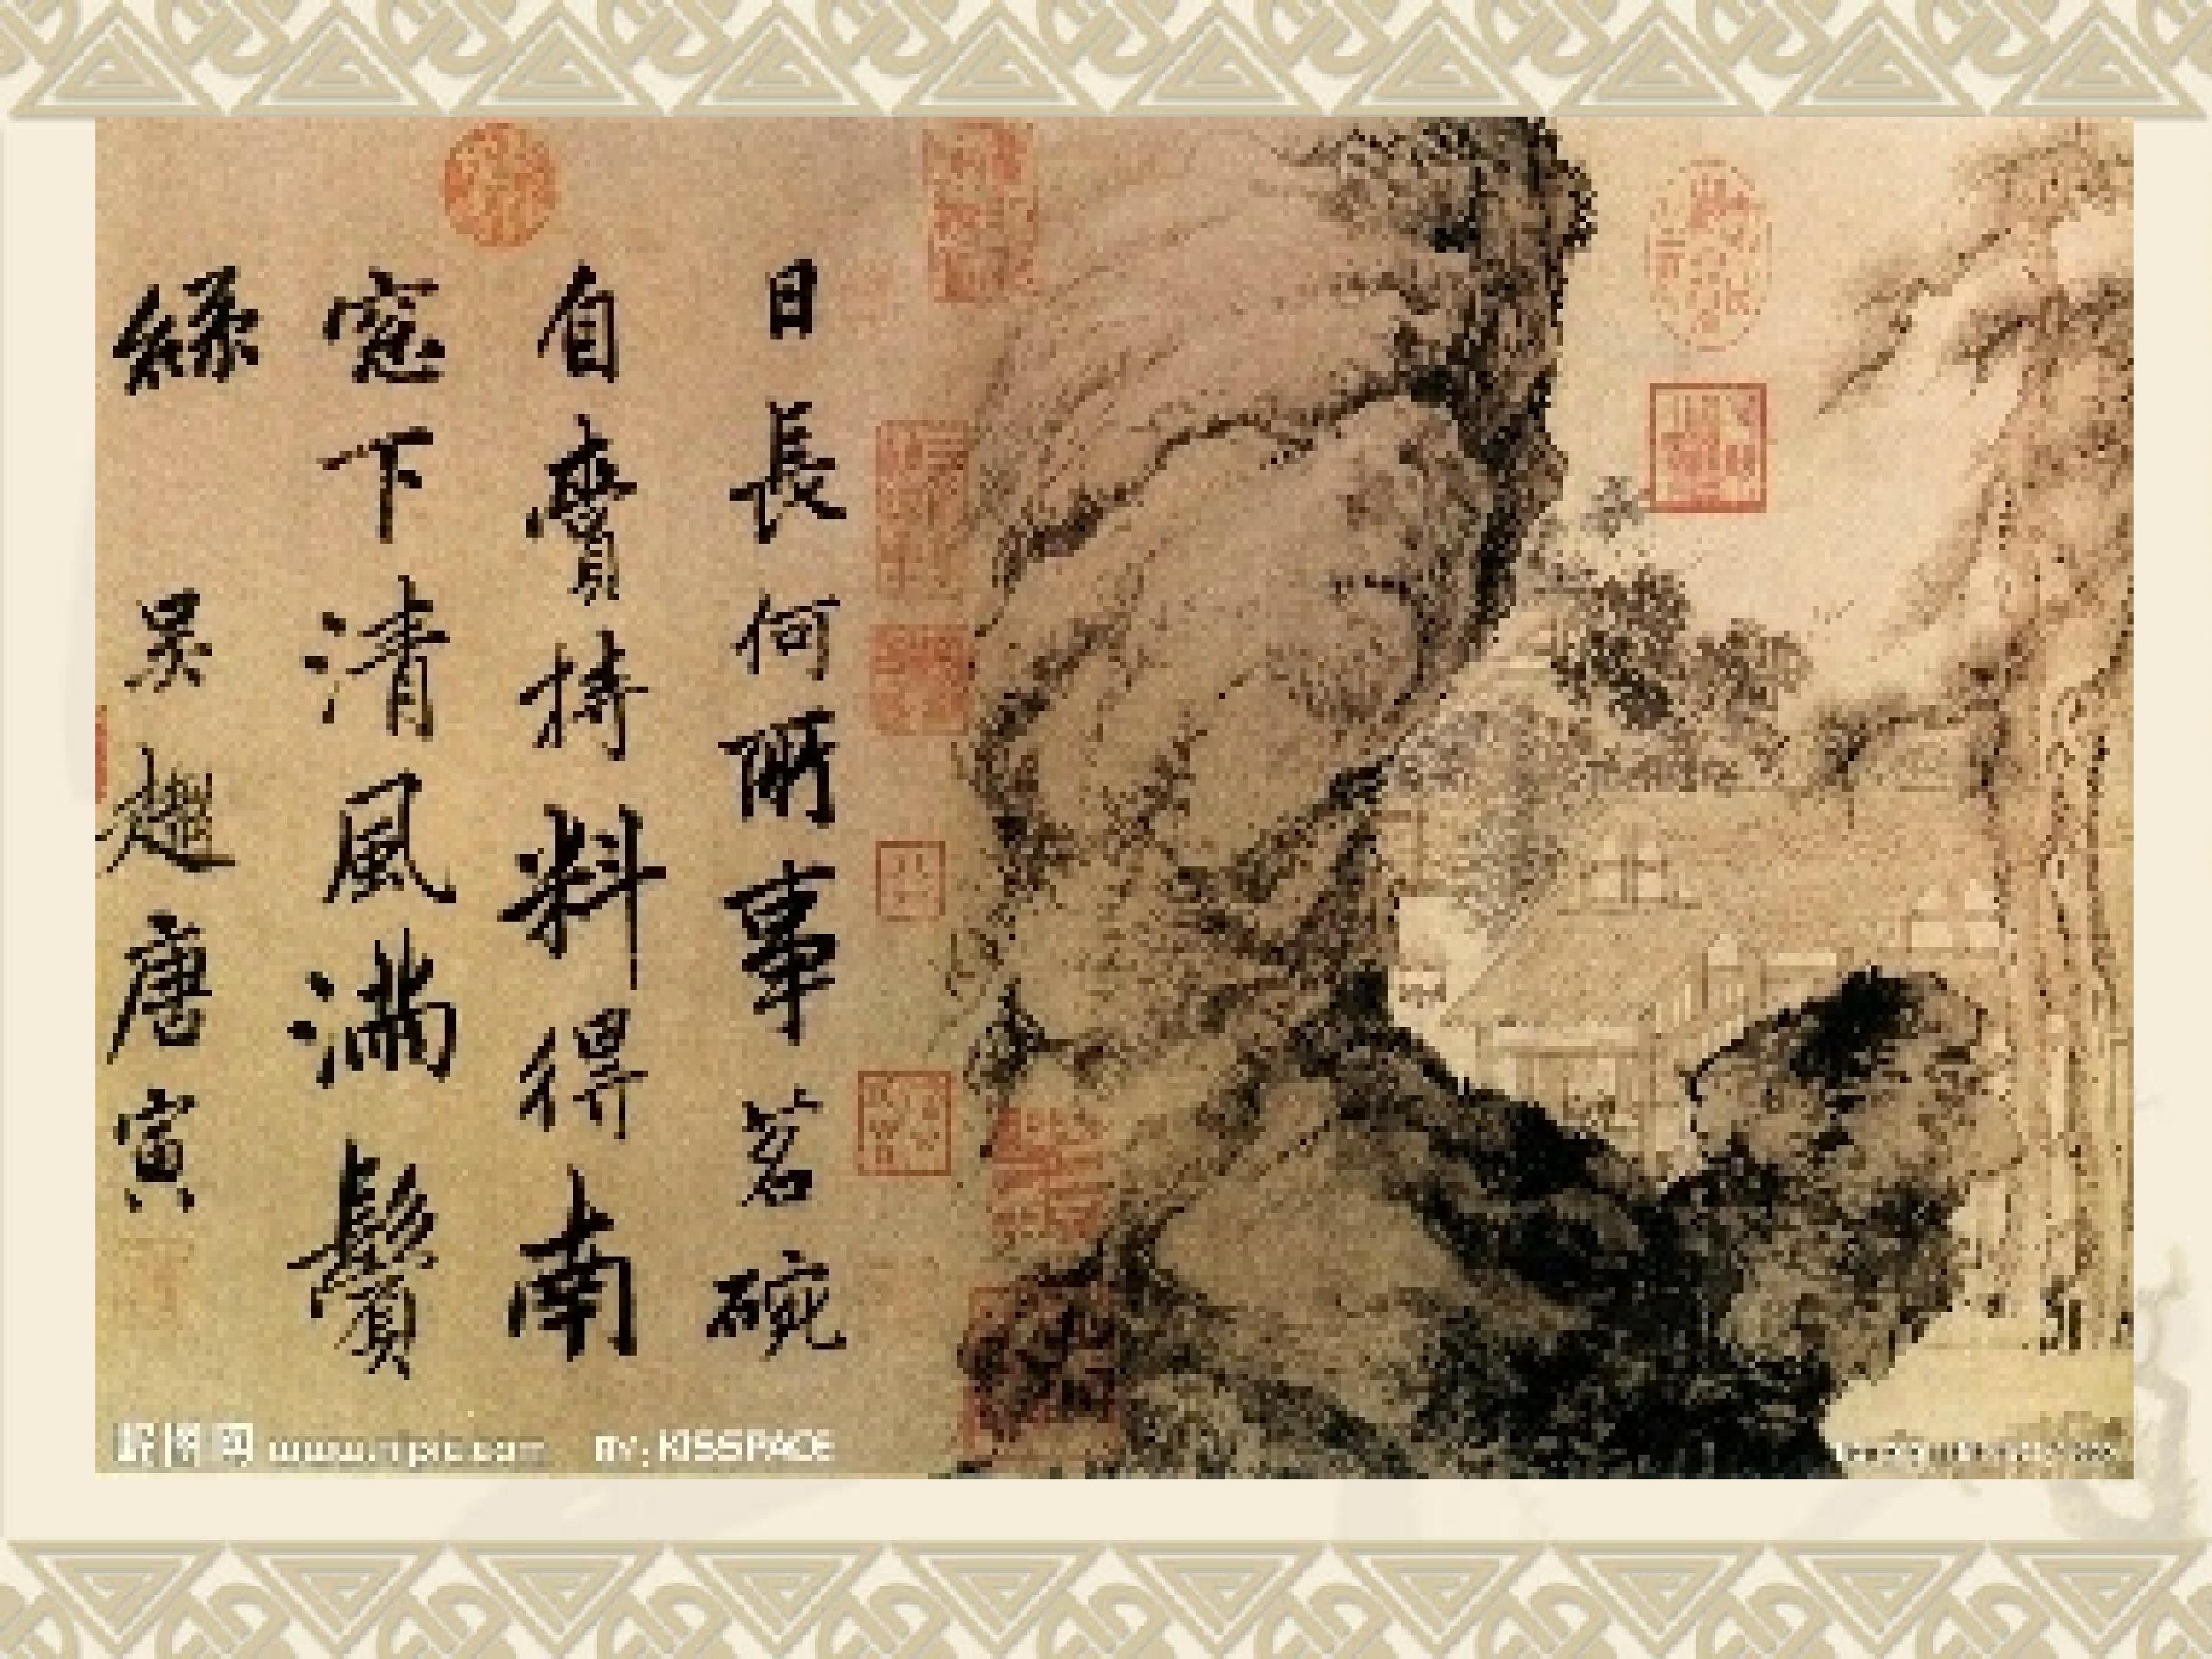 日長何所事茗碗
自賷持料得南
窓下清風滿鬢
絲 吳趨唐寅
昵图网 www.nipic.com BY:KISSPACE